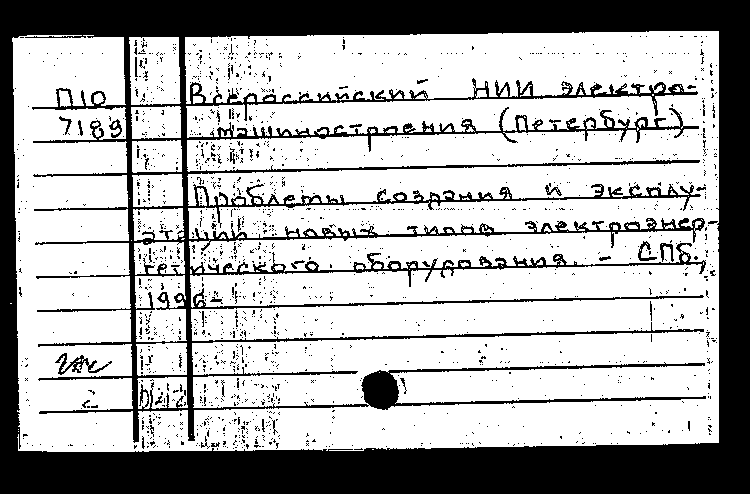 П10 Всероссийский НИИ электро-
7189 машиностроения (Петербург)
Проблемы создания и эксплу-
атации новых типов электроэнер-
гетического оборудования. - СПб.,
1996-